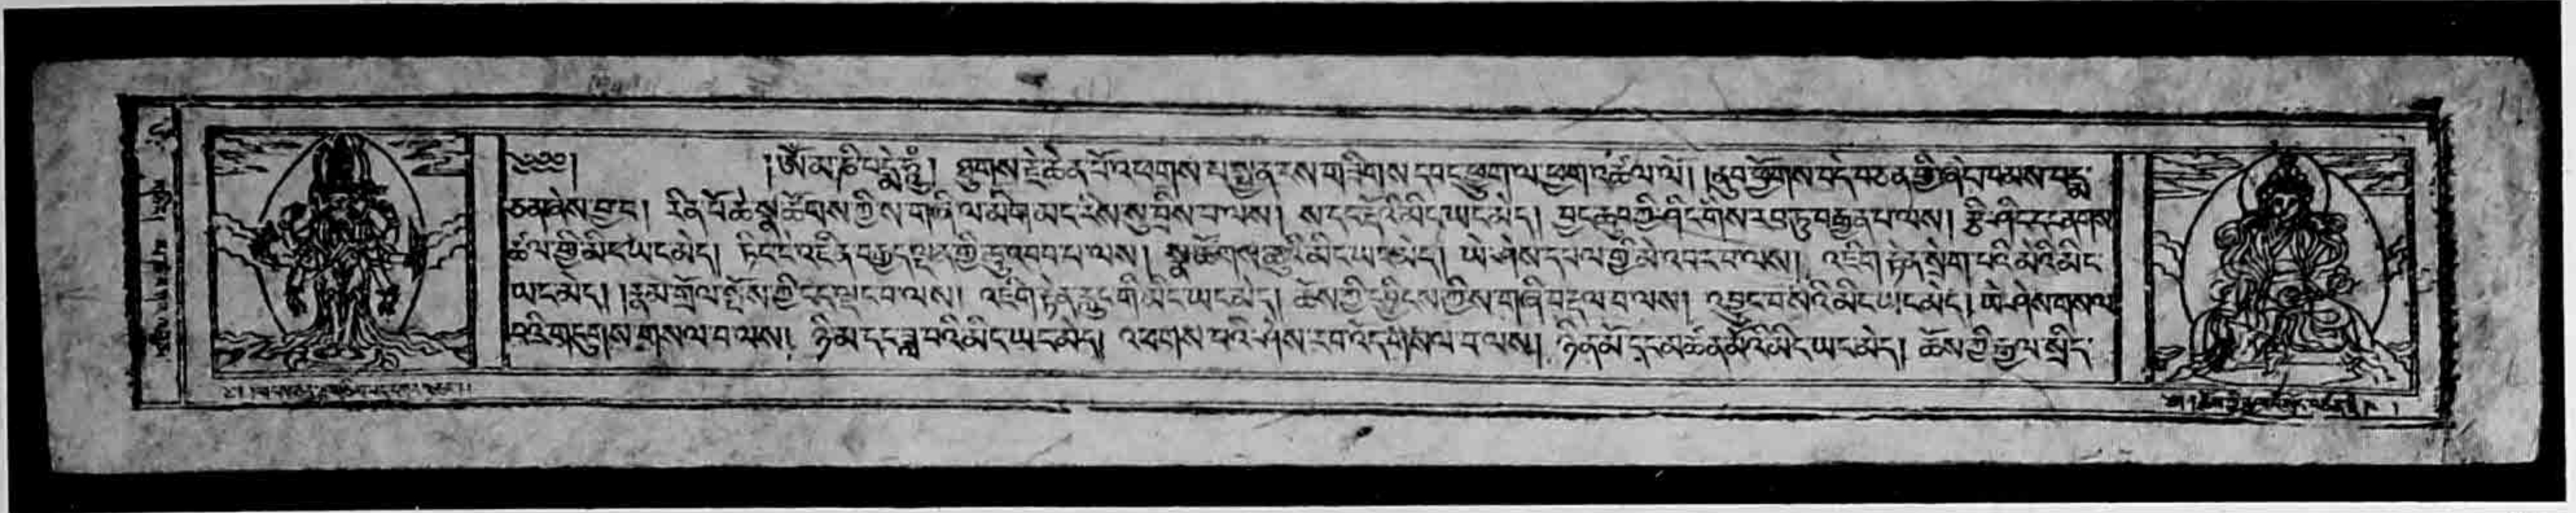 ༄༅༅། །ཨོཾ་མ་ཎི་པདྨེ་ཧཱུྃ། ཐུགས་རྗེ་ཆེན་པོ་འཕགས་པ་སྤྱན་རས་གཟིགས་དབང་ཕྱུག་ལ་ཕྱག་འཚལ་ལོ། །ནུབ་ཕྱོགས་བདེ་བ་ཅན་གྱི་ཞིང་ཁམས་པདྨ་
ཅན་ཞེས་བྱ་བ། རིན་པོ་ཆེ་སྣ་ཚོགས་ཀྱིས་གཞི་ལ་མིག་མང་རིས་སུ་བྲིས་པ་ལས། ས་དང་རྡོའི་མིང་ཡང་མེད། བྱང་ཆུབ་ཀྱི་ཤིང་གིས་རབ་ཏུ་བརྒྱན་པ་ལས། རྩི་ཤིང་དང་ནགས་
ཚལ་གྱི་མིང་ཡང་མེད། ཏིང་ངེ་འཛིན་བརྒྱད་ལྡན་གྱི་ཆུ་འབབ་པ་ལས། སྣ་ཚོགས་ཆུའི་མིང་ཡང་མེད། ཡེ་ཤེས་དཔལ་གྱི་མེ་འབར་བ་ལས། འཇིག་རྟེན་སྲེག་པའི་མེའི་མིང་
ཡང་མེད། །རྣམ་གྲོལ་སྤོས་ཀྱི་ངད་ལྡང་བ་ལས། འཇིག་རྟེན་རླུང་གི་མིང་ཡང་མེད། ཆོས་ཀྱི་དབྱིངས་ཀྱིས་གཞི་བརྡལ་བ་ལས། འབྱུང་བ་སའི་མིང་ཡང་མེད། ཡེ་ཤེས་གསལ་
བའི་གདུགས་གསལ་བ་ལས། ཉི་མ་དང་ཟླ་བའི་མིང་ཡང་མེད། འཕགས་པའི་ཤེས་རབ་འོད་གསལ་བ་ལས། ཉིན་མོ་དང་མཚན་མོའི་མིང་ཡང་མེད། ཆོས་ཀྱི་རྒྱལ་སྲིད་